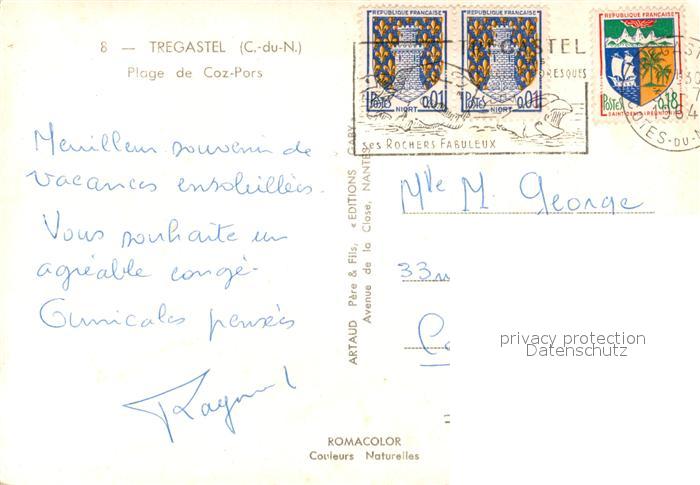 8 — TREGASTEL (C.-du-N.)
Plage de Coz-Pors
Meilleur souvenir de
vacances ensoleillées.
Vous souhaite un
agréable congé-
Amicales pensées
Raymond
ARTAUD Père & Fils, « EDITIONS GABY
Avenue de la Close, NANTES
ROMACOLOR
Couleurs Naturelles
REPUBLIQUE FRANÇAISE
POSTES
0,01
NIORT
REPUBLIQUE FRANÇAISE
POSTES
0,01
NIORT
TREGASTEL
ses ROCHERS FABULEUX
REPUBLIQUE FRANÇAISE
POSTES
0,18
SAINT-DENIS (REUNION)
Mlle M. George
33
privacy protection
Datenschutz